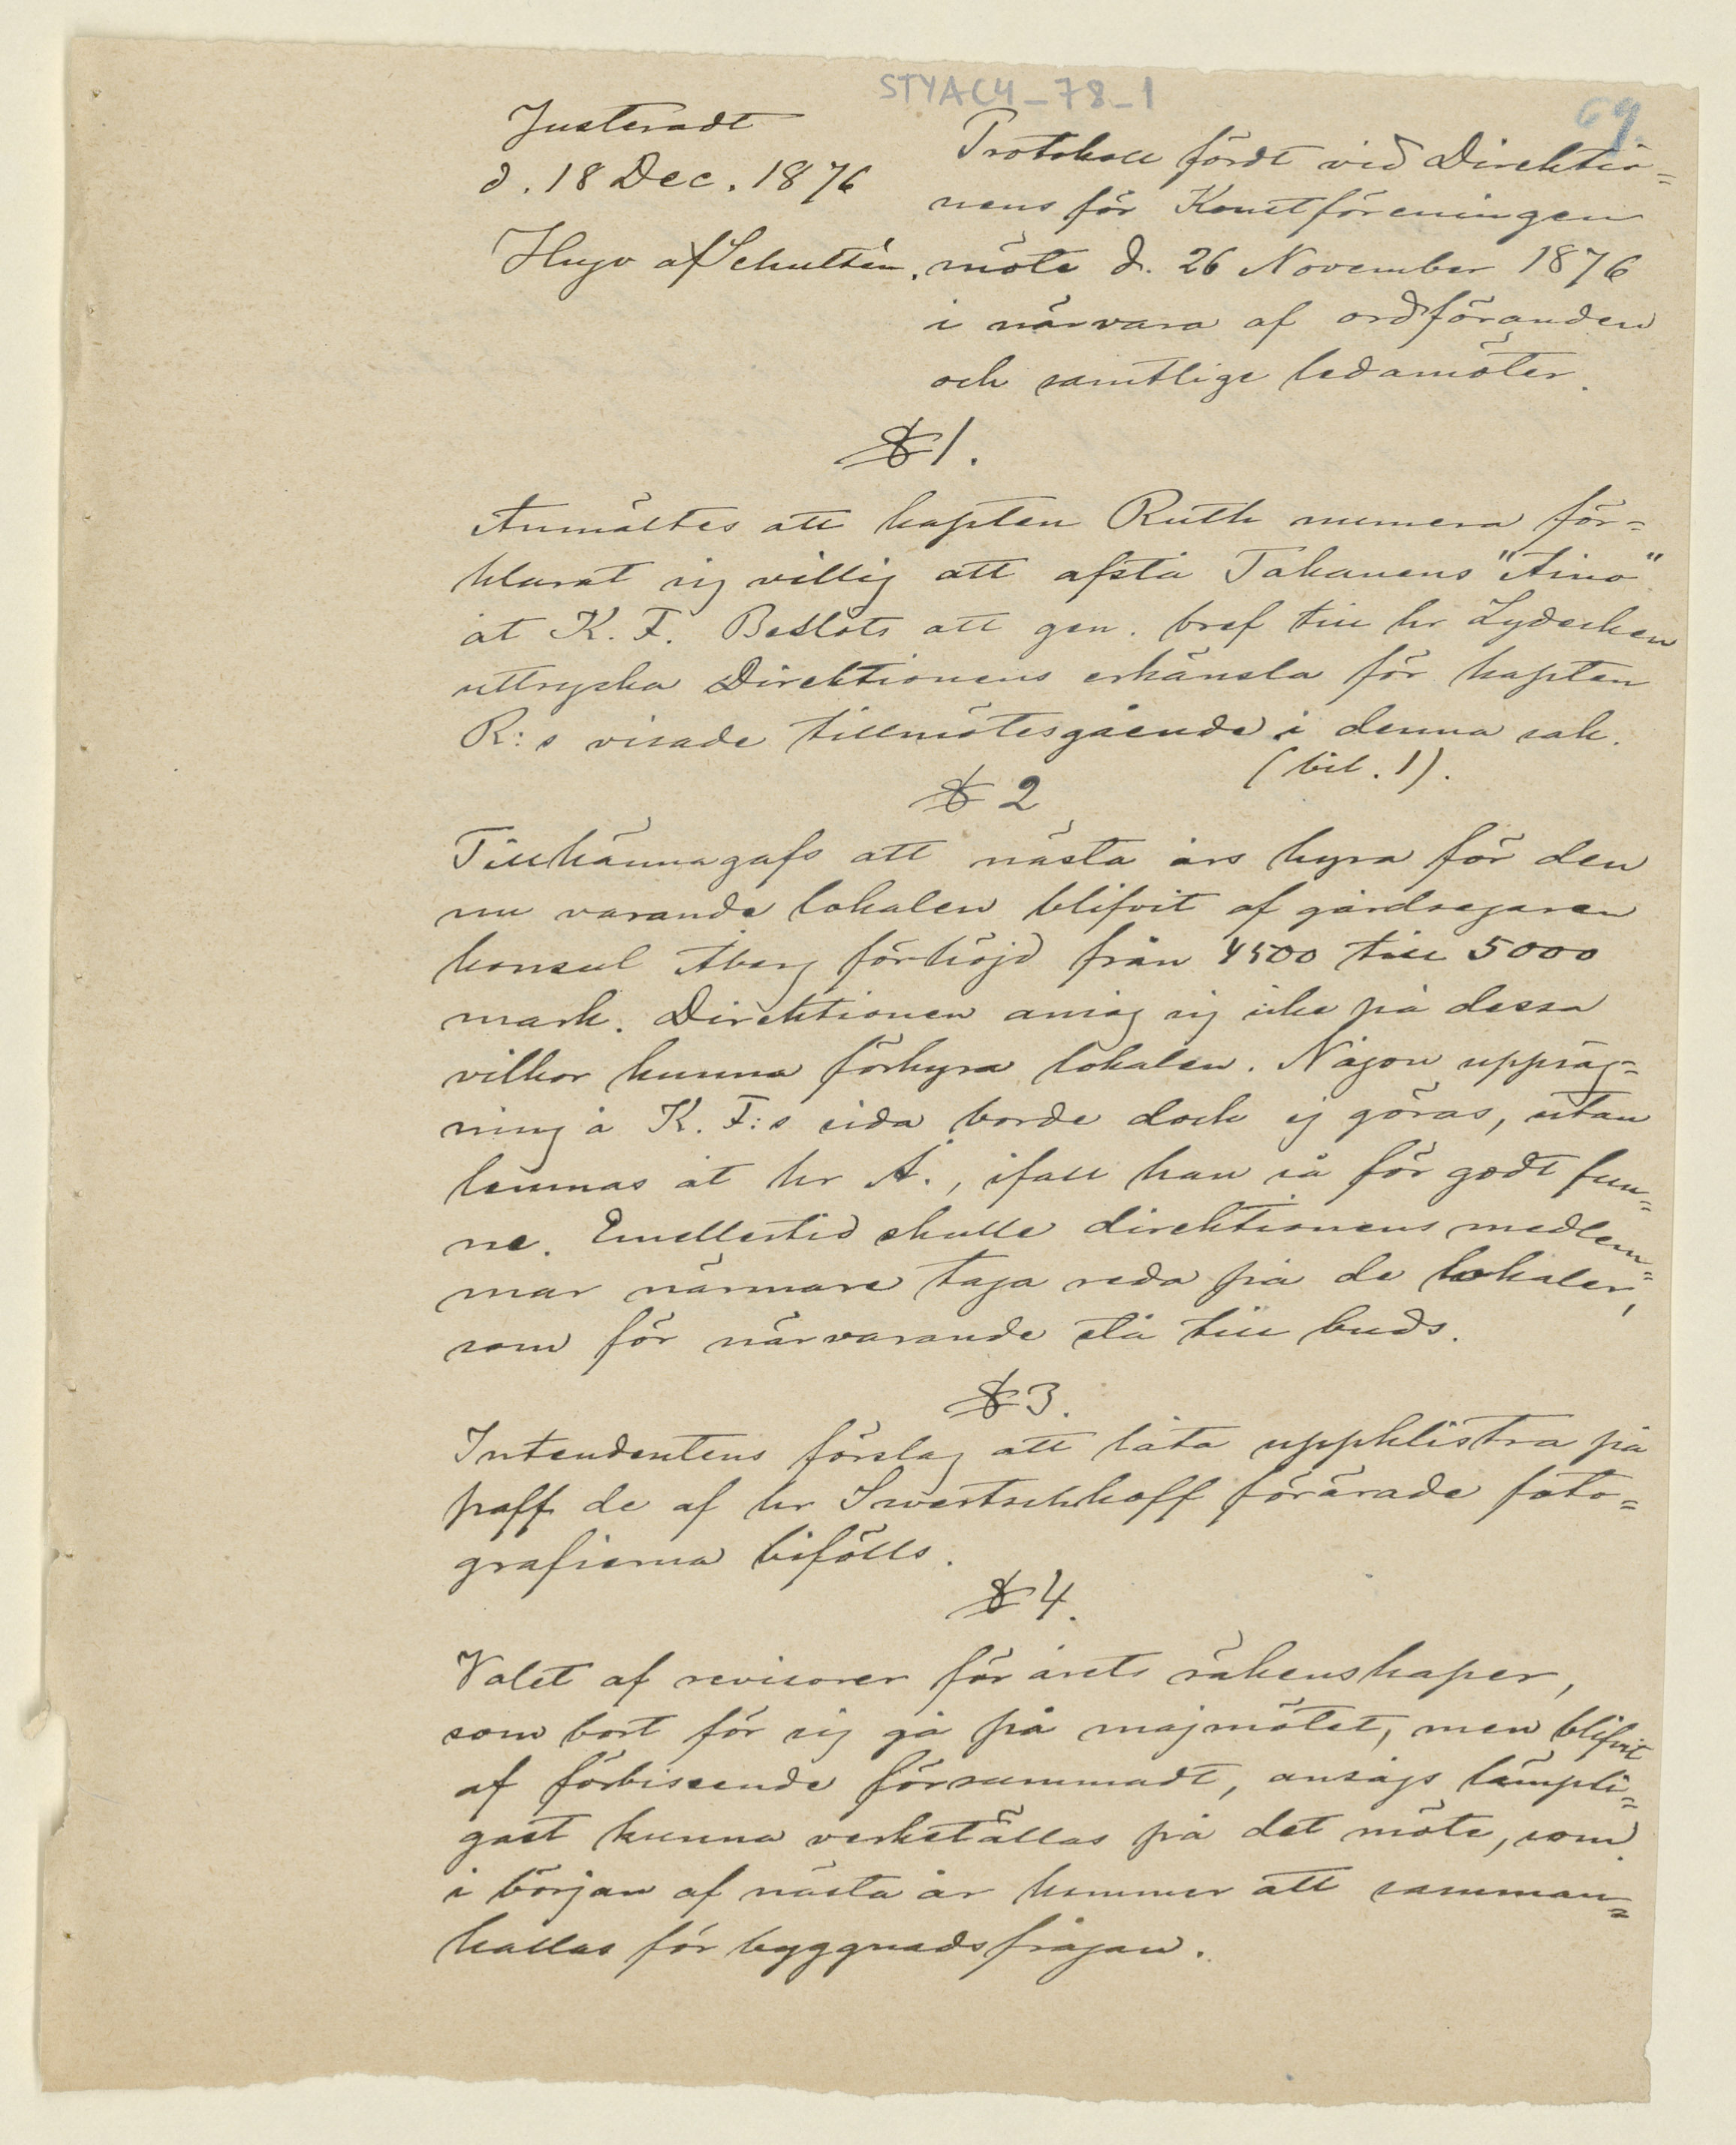 STYAC4_78_1
69.
Justeradt
d. 18 Dec. 1876
Hugo af Schultén.
Protokoll fördt vid Direktio=
nens för Konstföreningen
möte d. 26 November 1876
i närvara af ordföranden
och samtlige ledamöter.
§ 1.
Anmältes att kapten Ruth numera för=
klarat sig villig att afstå Takanens "Aino"
åt K. F. Beslöts att gen. bref till hr Lydecken
uttrycka Direktionens erkänsla för kapten
R:s visade tillmötesgående i denna sak.
(bil. 1).
§ 2
Tillkännagafs att nästa års hyra för den
nu varande lokalen blifvit af gårdsegaren
konsul Åberg förhöjd från 4500 till 5000
mark. Direktionen ansåg sig icke på dessa
vilkor kunna förhyra lokalen. Någon uppsäg=
ning å K. F:s sida borde dock ej göras, utan
lemnas åt hr Å., ifall han så för godt fun=
ne. Emellertid skulle direktionens medlem=
mar närmare taga reda på de lokaler,
som för närvarande stå till buds.
§ 3.
Intendentens förslag att låta uppklistra på
paff de af hr Swertschkoff förärade foto=
grafierna bifölls.
§ 4.
Valet af revisorer för årets räkenskaper,
som bort för sig gå på majmötet, men blifvit
af förbiseende försummadt, ansågs lämpli=
gast kunna verkställas på det möte, som
i början af nästa år kommer att samman=
kallas för byggnadsfrågan.